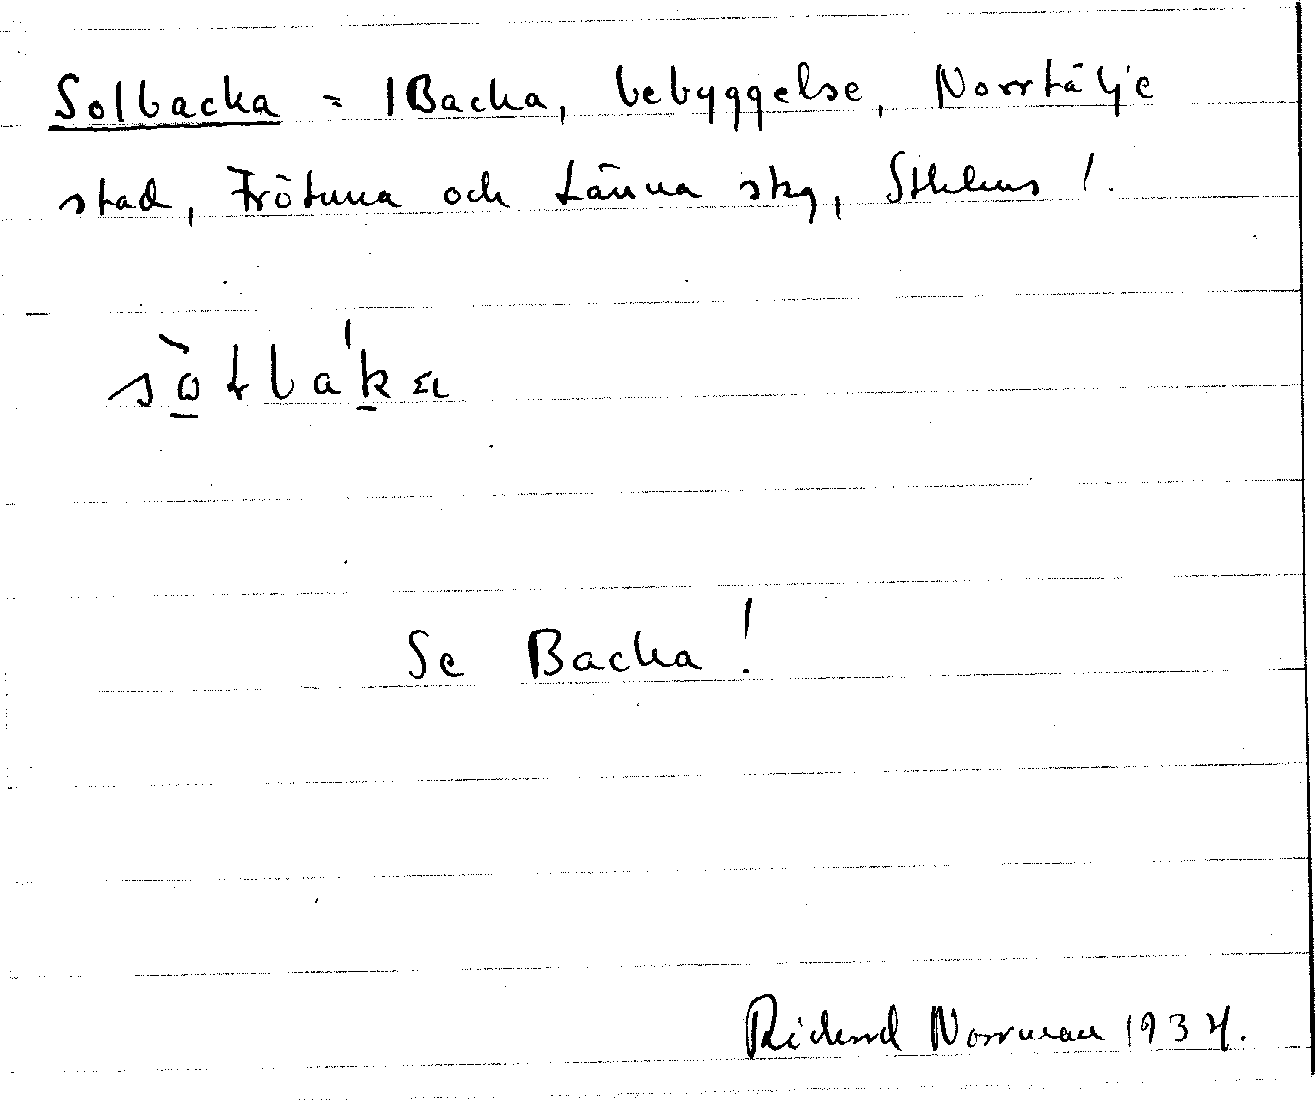 Solbacka = 1 Backa, bebyggelse, Norrtälje
stad, Frötuna och Länna skg, Sthlms l.
sò̲ɫbaˈk̲a
Se Backa!
Rickard Norrman 1934.